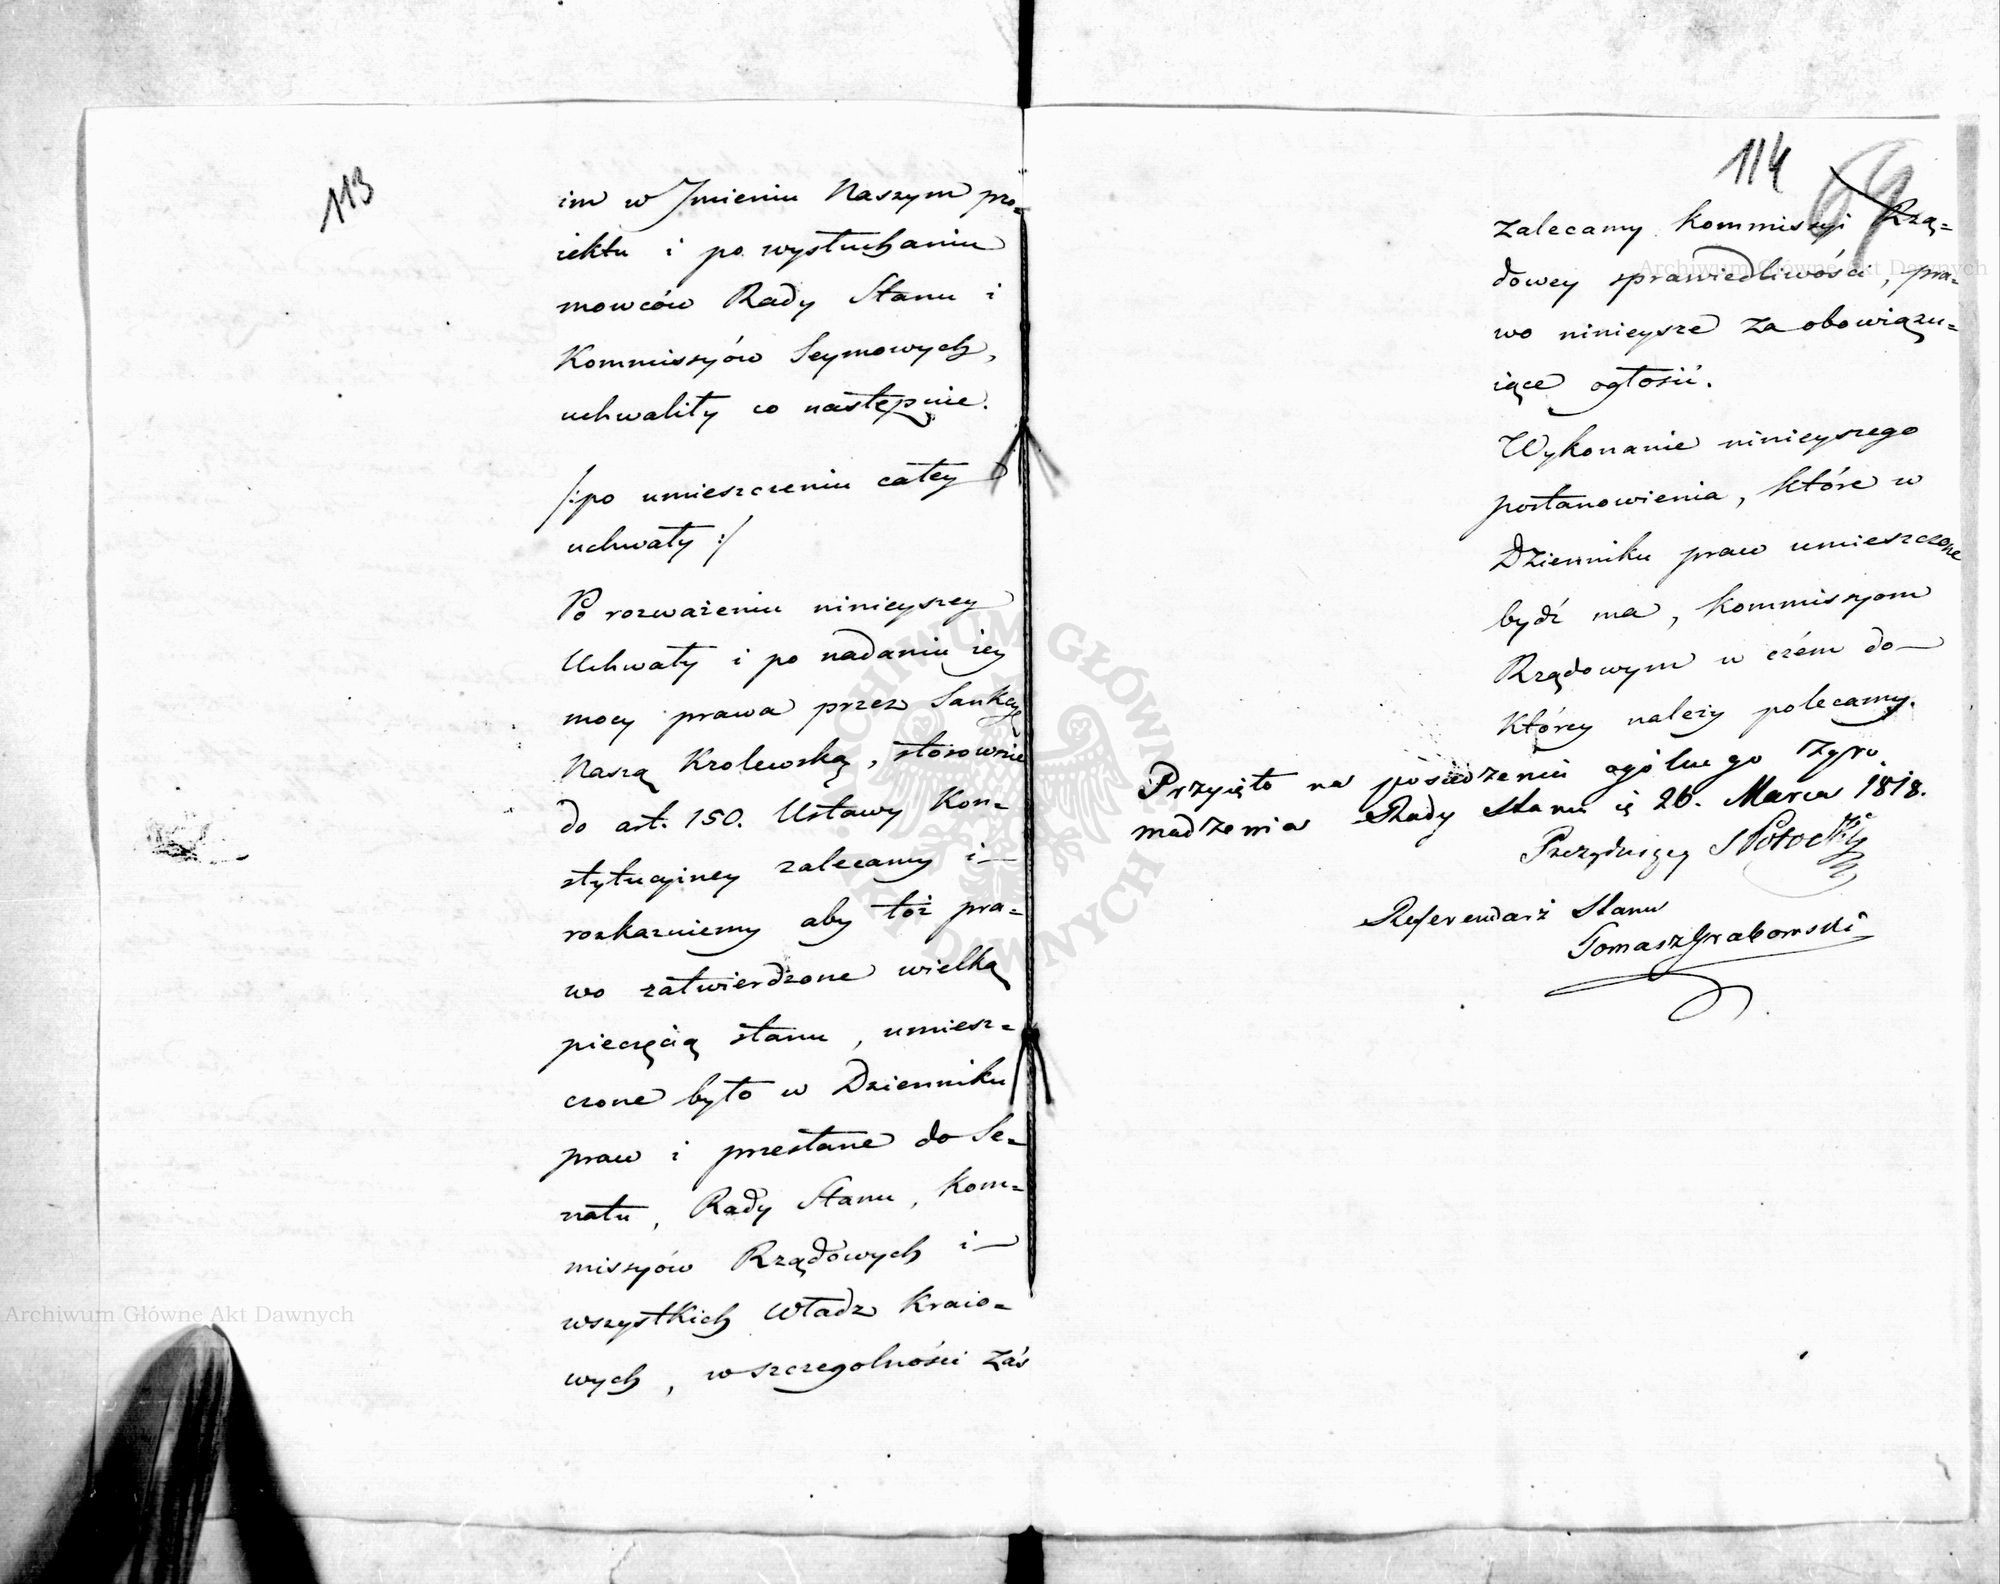 113
im w Jmieniu Naszym pro=
iektu i po wysłuchaniu
mowców Rady Stanu i
Kommissyów Seymowych,
uchwaliły co następuie.
/:po umieszczeniu całey
uchwały :/
Po rozważeniu ninieyszey
Uchwały i po nadaniu iey
mocy prawa przez Sankcyę
Naszą Krolewską, stosownie
do art. 150. Ustawy Kon=
stytucyiney zalecamy i
rozkazuiemy aby toż pra=
wo zatwierdzone wielką
pieczęcią stanu, umiesz=
czone było w Dzienniku
praw i przesłane do Se=
natu, Rady Stanu, Kom=
missyów Rządowych i
wszystkich Władz Kraio=
wych, w szczegolności zaś
114
69
zalecamy Kommissyi Rzą=
dowey sprawiedliwości, pra=
wo ninieysze za obowiązu=
iące ogłosić.
Wykonanie ninieyszego
postanowienia, które w
Dzienniku praw umieszczone
bydź ma, Kommissyom
Rządowym w czém do
którey należy polecamy.
Przyięto na posiedzeniu ogólnego zgro
madzenia Rady Stanu d. 26. Marca 1818.
Prezyduiący S Potocki
Referendarz Stanu
Tomasz Grabowski
Archiwum Główne Akt Dawnych
Archiwum Główne Akt Dawnych
ARCHIWUM GŁÓWNE AKT DAWNYCH